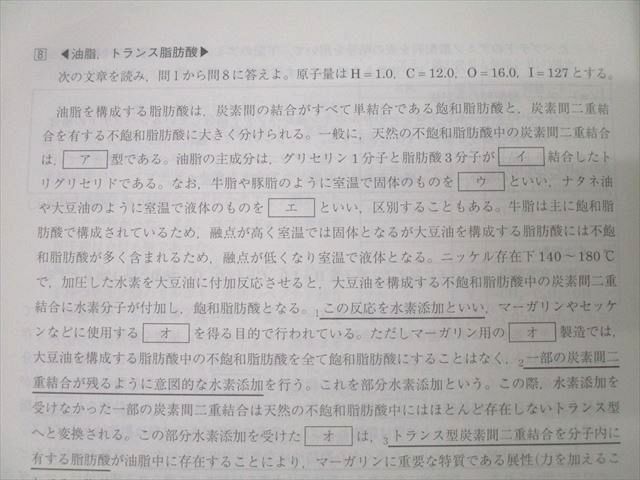 8 ◀油脂，トランス脂肪酸▶
次の文章を読み，問1から問8に答えよ。原子量はH＝1.0，C＝12.0，O＝16.0，I＝127とする。
油脂を構成する脂肪酸は，炭素間の結合がすべて単結合である飽和脂肪酸と，炭素間二重結
合を有する不飽和脂肪酸に大きく分けられる。一般に，天然の不飽和脂肪酸中の炭素間二重結合
は，ア型である。油脂の主成分は，グリセリン1分子と脂肪酸3分子がイ結合したト
リグリセリドである。なお，牛脂や豚脂のように室温で固体のものをウといい，ナタネ油
や大豆油のように室温で液体のものをエといい，区別することもある。牛脂は主に飽和脂
肪酸で構成されているため，融点が高く室温では固体となるが大豆油を構成する脂肪酸には不飽
和脂肪酸が多く含まれるため，融点が低くなり室温で液体となる。ニッケル存在下140～180℃
で，加圧した水素を大豆油に付加反応させると，大豆油を構成する不飽和脂肪酸中の炭素間二重
結合に水素分子が付加し，飽和脂肪酸となる。1この反応を水素添加といい，マーガリンやセッケ
ンなどに使用するオを得る目的で行われている。ただしマーガリン用のオ製造では，
大豆油を構成する脂肪酸中の不飽和脂肪酸を全て飽和脂肪酸にすることはなく，2一部の炭素間二
重結合が残るように意図的な水素添加を行う。これを部分水素添加という。この際，水素添加を
受けなかった一部の炭素間二重結合は天然の不飽和脂肪酸中にはほとんど存在しないトランス型
へと変換される。この部分水素添加を受けたオは，3トランス型炭素間二重結合を分子内に
有する脂肪酸が油脂中に存在することにより，マーガリンに重要な特質である展性(力を加えるこ